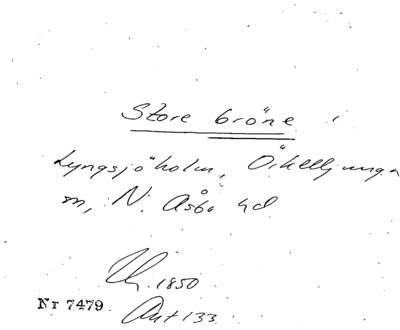 Store bröne i
Lyngsjöholm, Örkelljunga
m, N. Åsbo hd
1850
Nr 7479.
Ant 133.